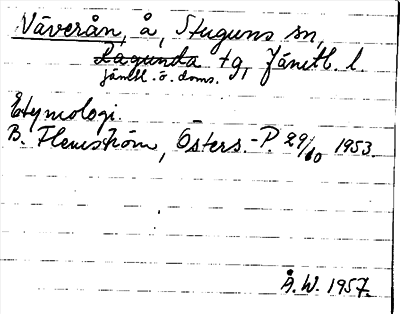 Näverån, å, Stuguns sn,
Ragunda tg, Jämtl. l.
jämtl. ö. doms.
Etymologi.
B. Flemström, Östers.-P. 29/10 1953.
Å.W. 1957.